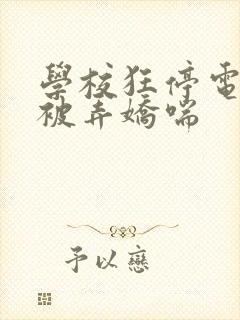 學校狂停電
被弄嬌喘
予以戀